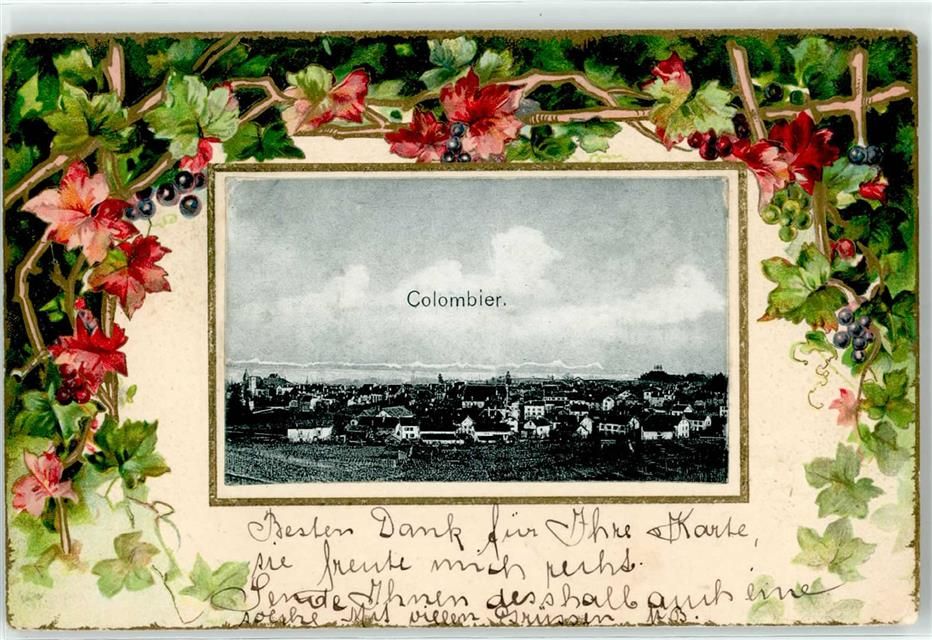 Colombier.
Besten Dank für Ihre Karte,
sie freute mich recht.
Sende Ihnen desshalb auch eine
solche Mit vielen Grüssen